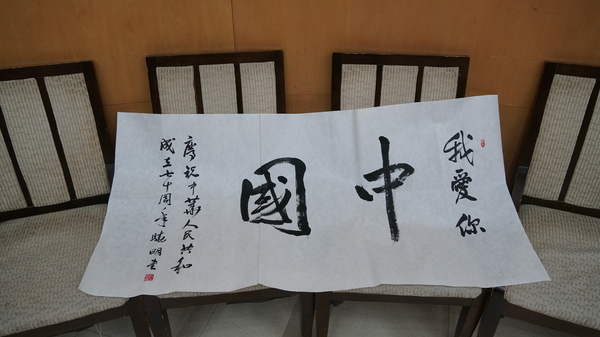 我愛你
中國
慶祝中華人民共和
成立七十周年
明书